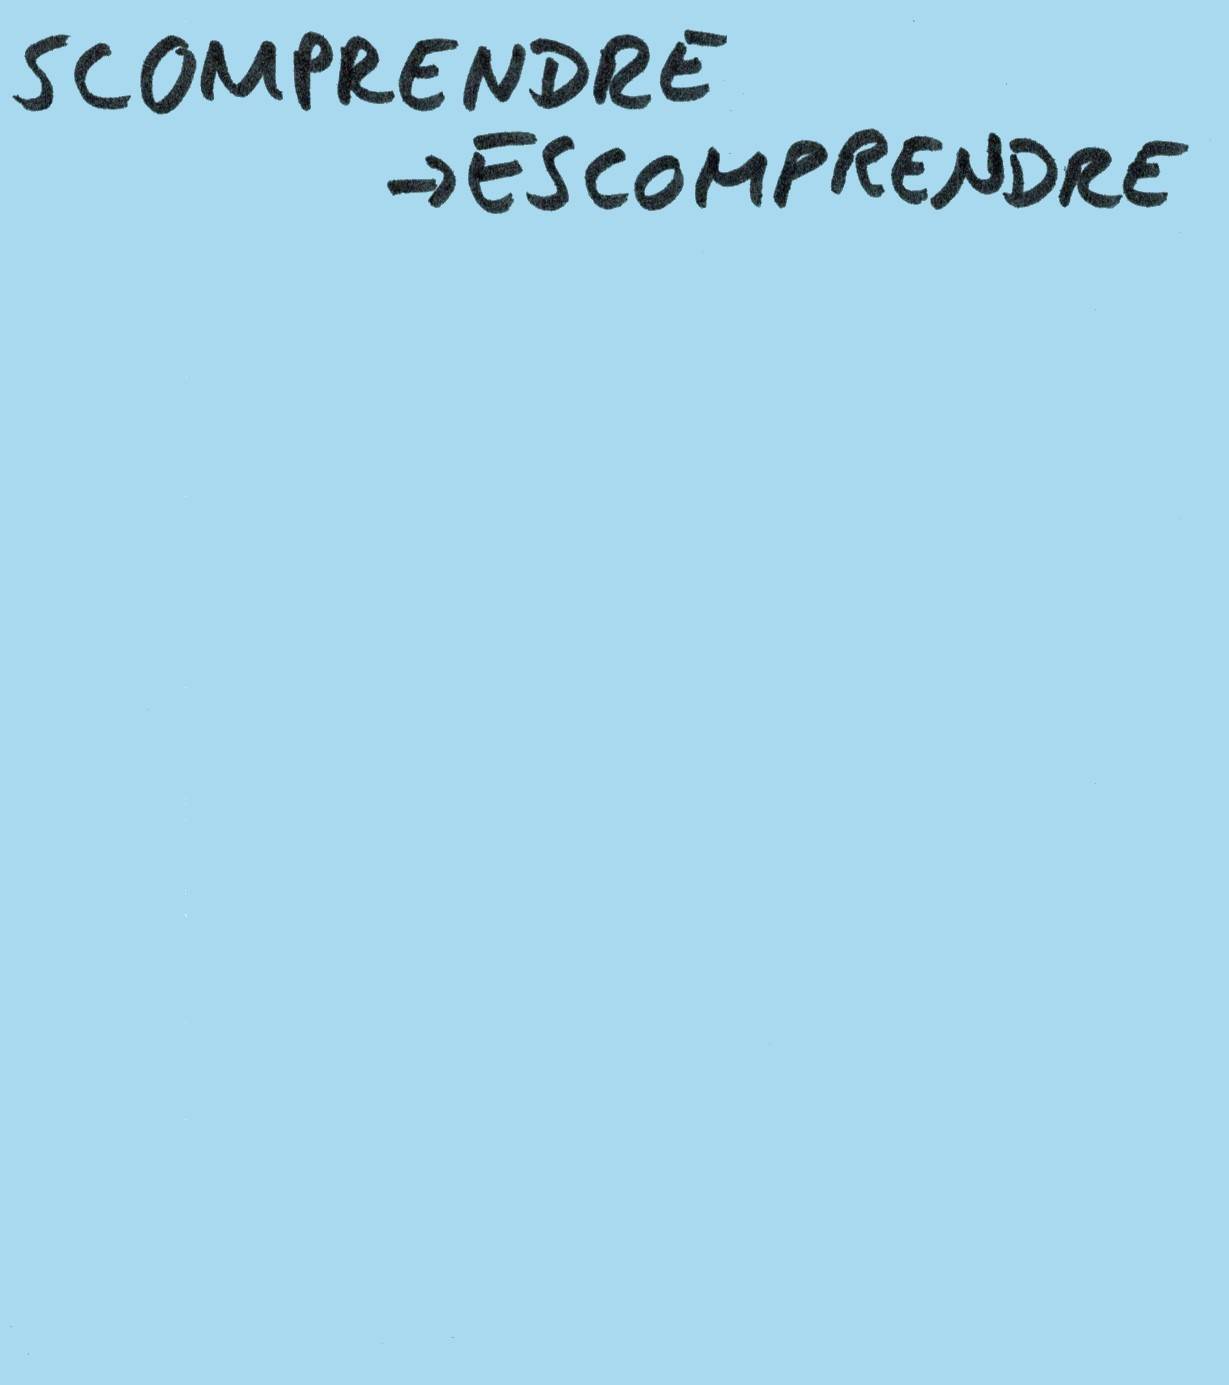 SCOMPRENDRE
→ESCOMPRENDRE